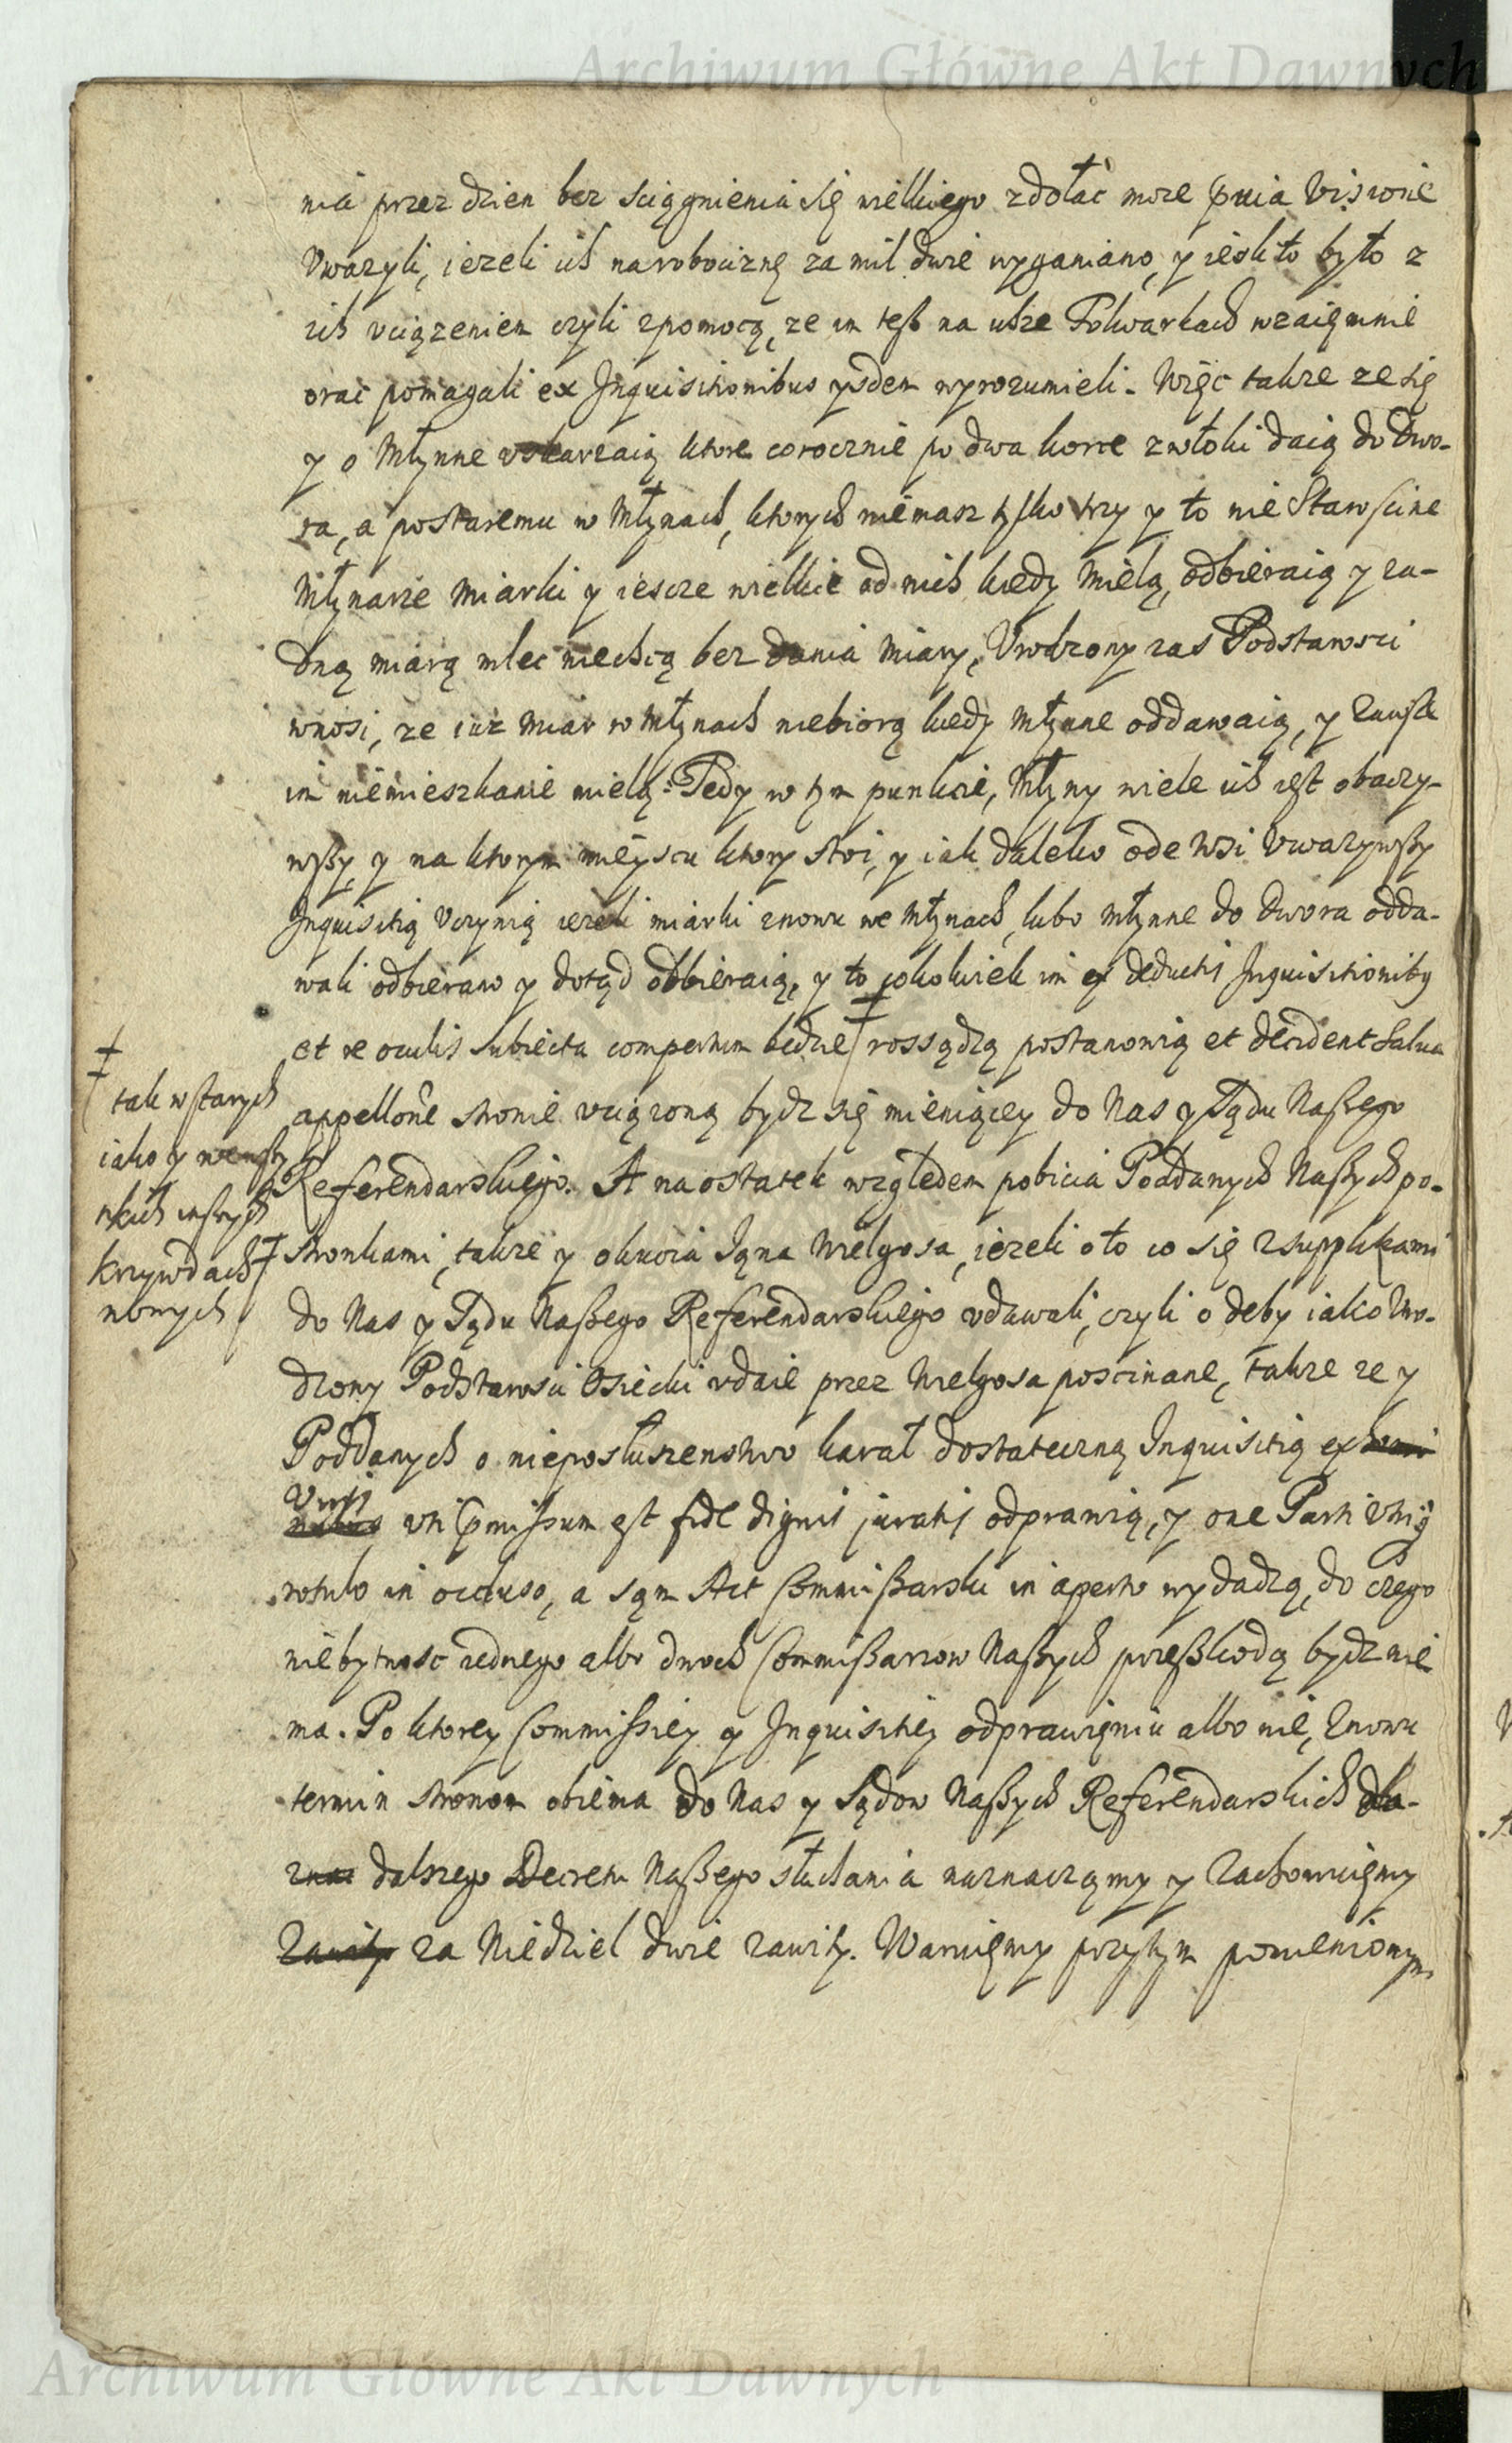 Archiwum Główne Akt Dawnych
nia przez dzien bez sciągnienia się wielkiego zdołać moze
Uwazyli, iezeli ich na robociznę za mil dwie wyganiano, y iesli to było z
ich uciązeniem czyli z pomocą, ze im tesz na ich ze Folwarkach wzaięmnie
orać pomagali ex Inquisitionibus ysdem wyrozumieli. Więc takze ze się
y o Młynne uskarzaią ktore corocznie po dwa korce z włoki daią do Dwo-
ra, a postaremu w Młynach, ktorych niemasz tylko trzy y to nie Starościne
Młynarze Miarki y iescze wielkie od nich kiedy Mielą, odbieraią y za-
dną miarą mlec niechcą bez dania Miary, Urodzony zas Podstarosci
wnosi, ze iuz Miar w Młynach niebiorą kiedy Młynne oddawaią, y
im niemieszkanie mielą. Tedy w tym punkcie, Młyny wiele ich iest obaczy-
wszy, y na ktorym mieyscu ktory stoi, y iak daleko ode Wsi Uwazywszy
Inquisitią Uczynią iezeli miarki znowu we Młynach, lubo Młynne do Dwora odda-
wali odbierano y dotąd odbieraią, y to cokolwiek im ex deductis Inquisitionibus
et re oculis subiecta compertum będzie ‡ rossądzą postanowią et decident salva
appellone stronie uciązoną bydz się mieniącey do Nas y Sądu Naszego
Referendarskiego. A na ostatek względem pobicia Poddanych Naszych po-
stronkami, takze y okucia Iana Wielgosa, iezeli o to co się z supplikami
do Nas y Sądu Naszego Referendarskiego udawali, czyli o deby iako Uro-
dzony Podstarosci Osiecki udaie przez Wielgosa poscinane, takze ze y
Poddanych o nieposłuszenstwo karał dostateczną Inquisitią ex
uti pmissum est fide dignis juratis odprawią, y one Parti
rotulo in occluso, a sąm Act Commissarski in aperto wydadzą, do czego
niebytnosc iednego albo dwoch Commissarzow Naszych przeszkodą bydz nie
ma. Po ktorey Commissiey y Inquisitiey odprawięniu albo nie, Znowu
termin stronom obiema do Nas y Sądow Naszych Referendarskich dla
dalszego Decretu Naszego słuchania naznaczamy y Zachowuięmy
za Niedziel dwie zawity. Waruięmy przytym pomienionym
‡
tak w starych
iako y
wszytkich inszych
krzywdach
nowych
Archiwum Główne Akt Dawnych